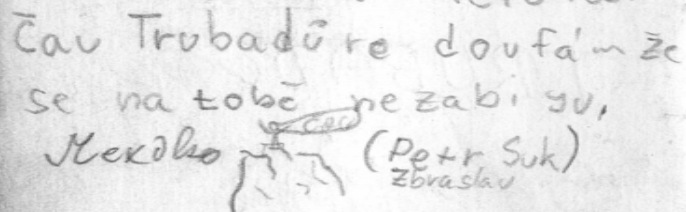 Čau Trubadúre doufám že
se na tobě nezabiju,
čau
(Petr Suk)
Zbraslav